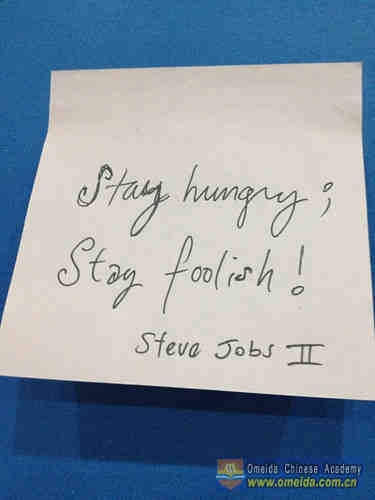 Stay hungry;
Stay foolish!
Steve Jobs II
Omeida Chinese Academy
www.omeida.com.cn